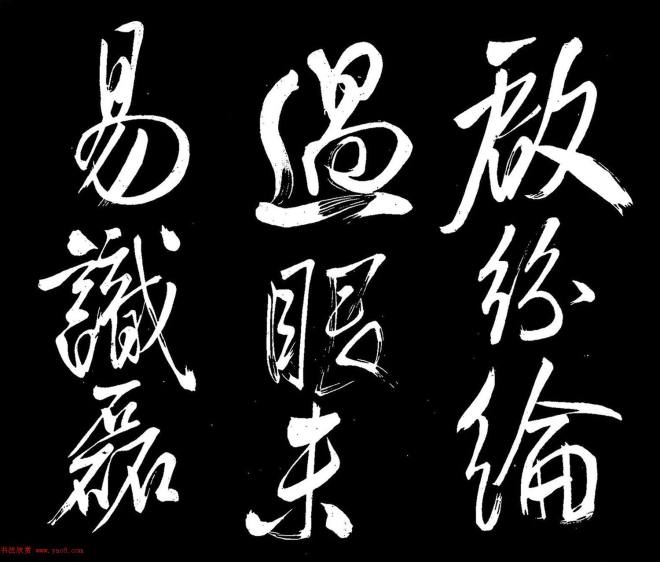 啟紛綸
過眼未
易識磊
书法欣赏 www.yac8.com